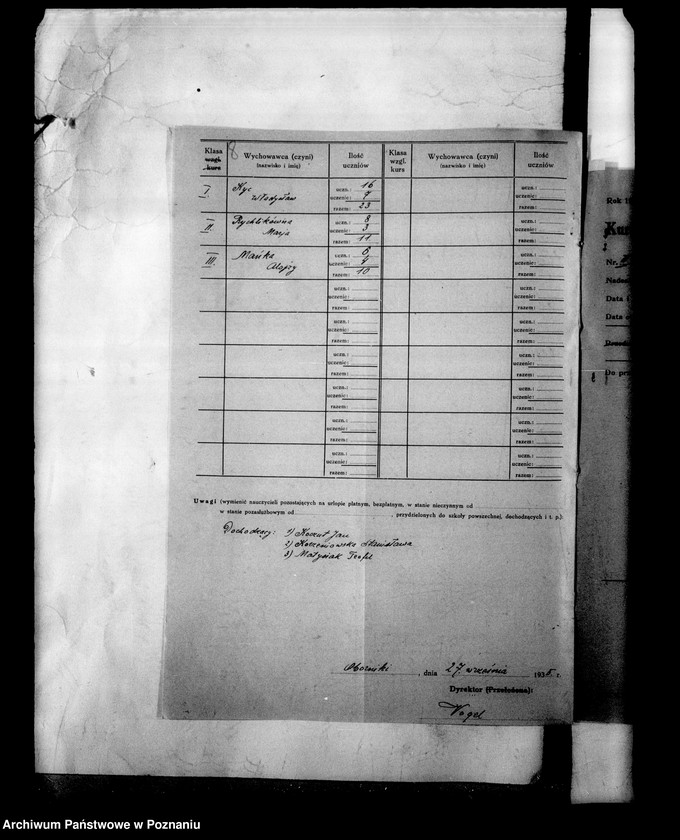 Klasa
wzgl.
kurs
Wychowawca (czyni)
(nazwisko i imię)
Ilość
uczniów
Klasa
wzgl.
kurs
Wychowawca (czyni)
(nazwisko i imię)
Ilość
uczniów
8
I. Kyc
Władysław
uczn.: 16
uczenic: 7
razem: 23
uczn.:
uczenic:
razem:
II. Rychlikówna
Marja
uczn.: 8
uczenic: 3
razem: 11
uczn.:
uczenic:
razem:
III. Mańka
Alojzy
uczn.: 6
uczenic: 4
razem: 10
uczn.:
uczenic:
razem:
uczn.:
uczenic:
razem:
uczn.:
uczenic:
razem:
uczn.:
uczenic:
razem:
uczn.:
uczenic:
razem:
uczn.:
uczenic:
razem:
uczn.:
uczenic:
razem:
uczn.:
uczenic:
razem:
uczn.:
uczenic:
razem:
uczn.:
uczenic:
razem:
uczn.:
uczenic:
razem:
uczn.:
uczenic:
razem:
uczn.:
uczenic:
razem:
Uwagi (wymienić nauczycieli pozostających na urlopie płatnym, bezpłatnym, w stanie nieczynnym od
w stanie pozasłużbowym od , przydzielonych do szkoły powszechnej, dochodzących i t. p.)
Dochodzący: 1) Koczut Jan
2) Korzeniowska Stanisława
3) Matysiak Teofil
Oborniki , dnia 27 września 193 r.
Dyrektor (Przełożona):
Vogel
Rok 1
Nr.
Data
Data
Do pr
Archiwum Państwowe w Poznaniu